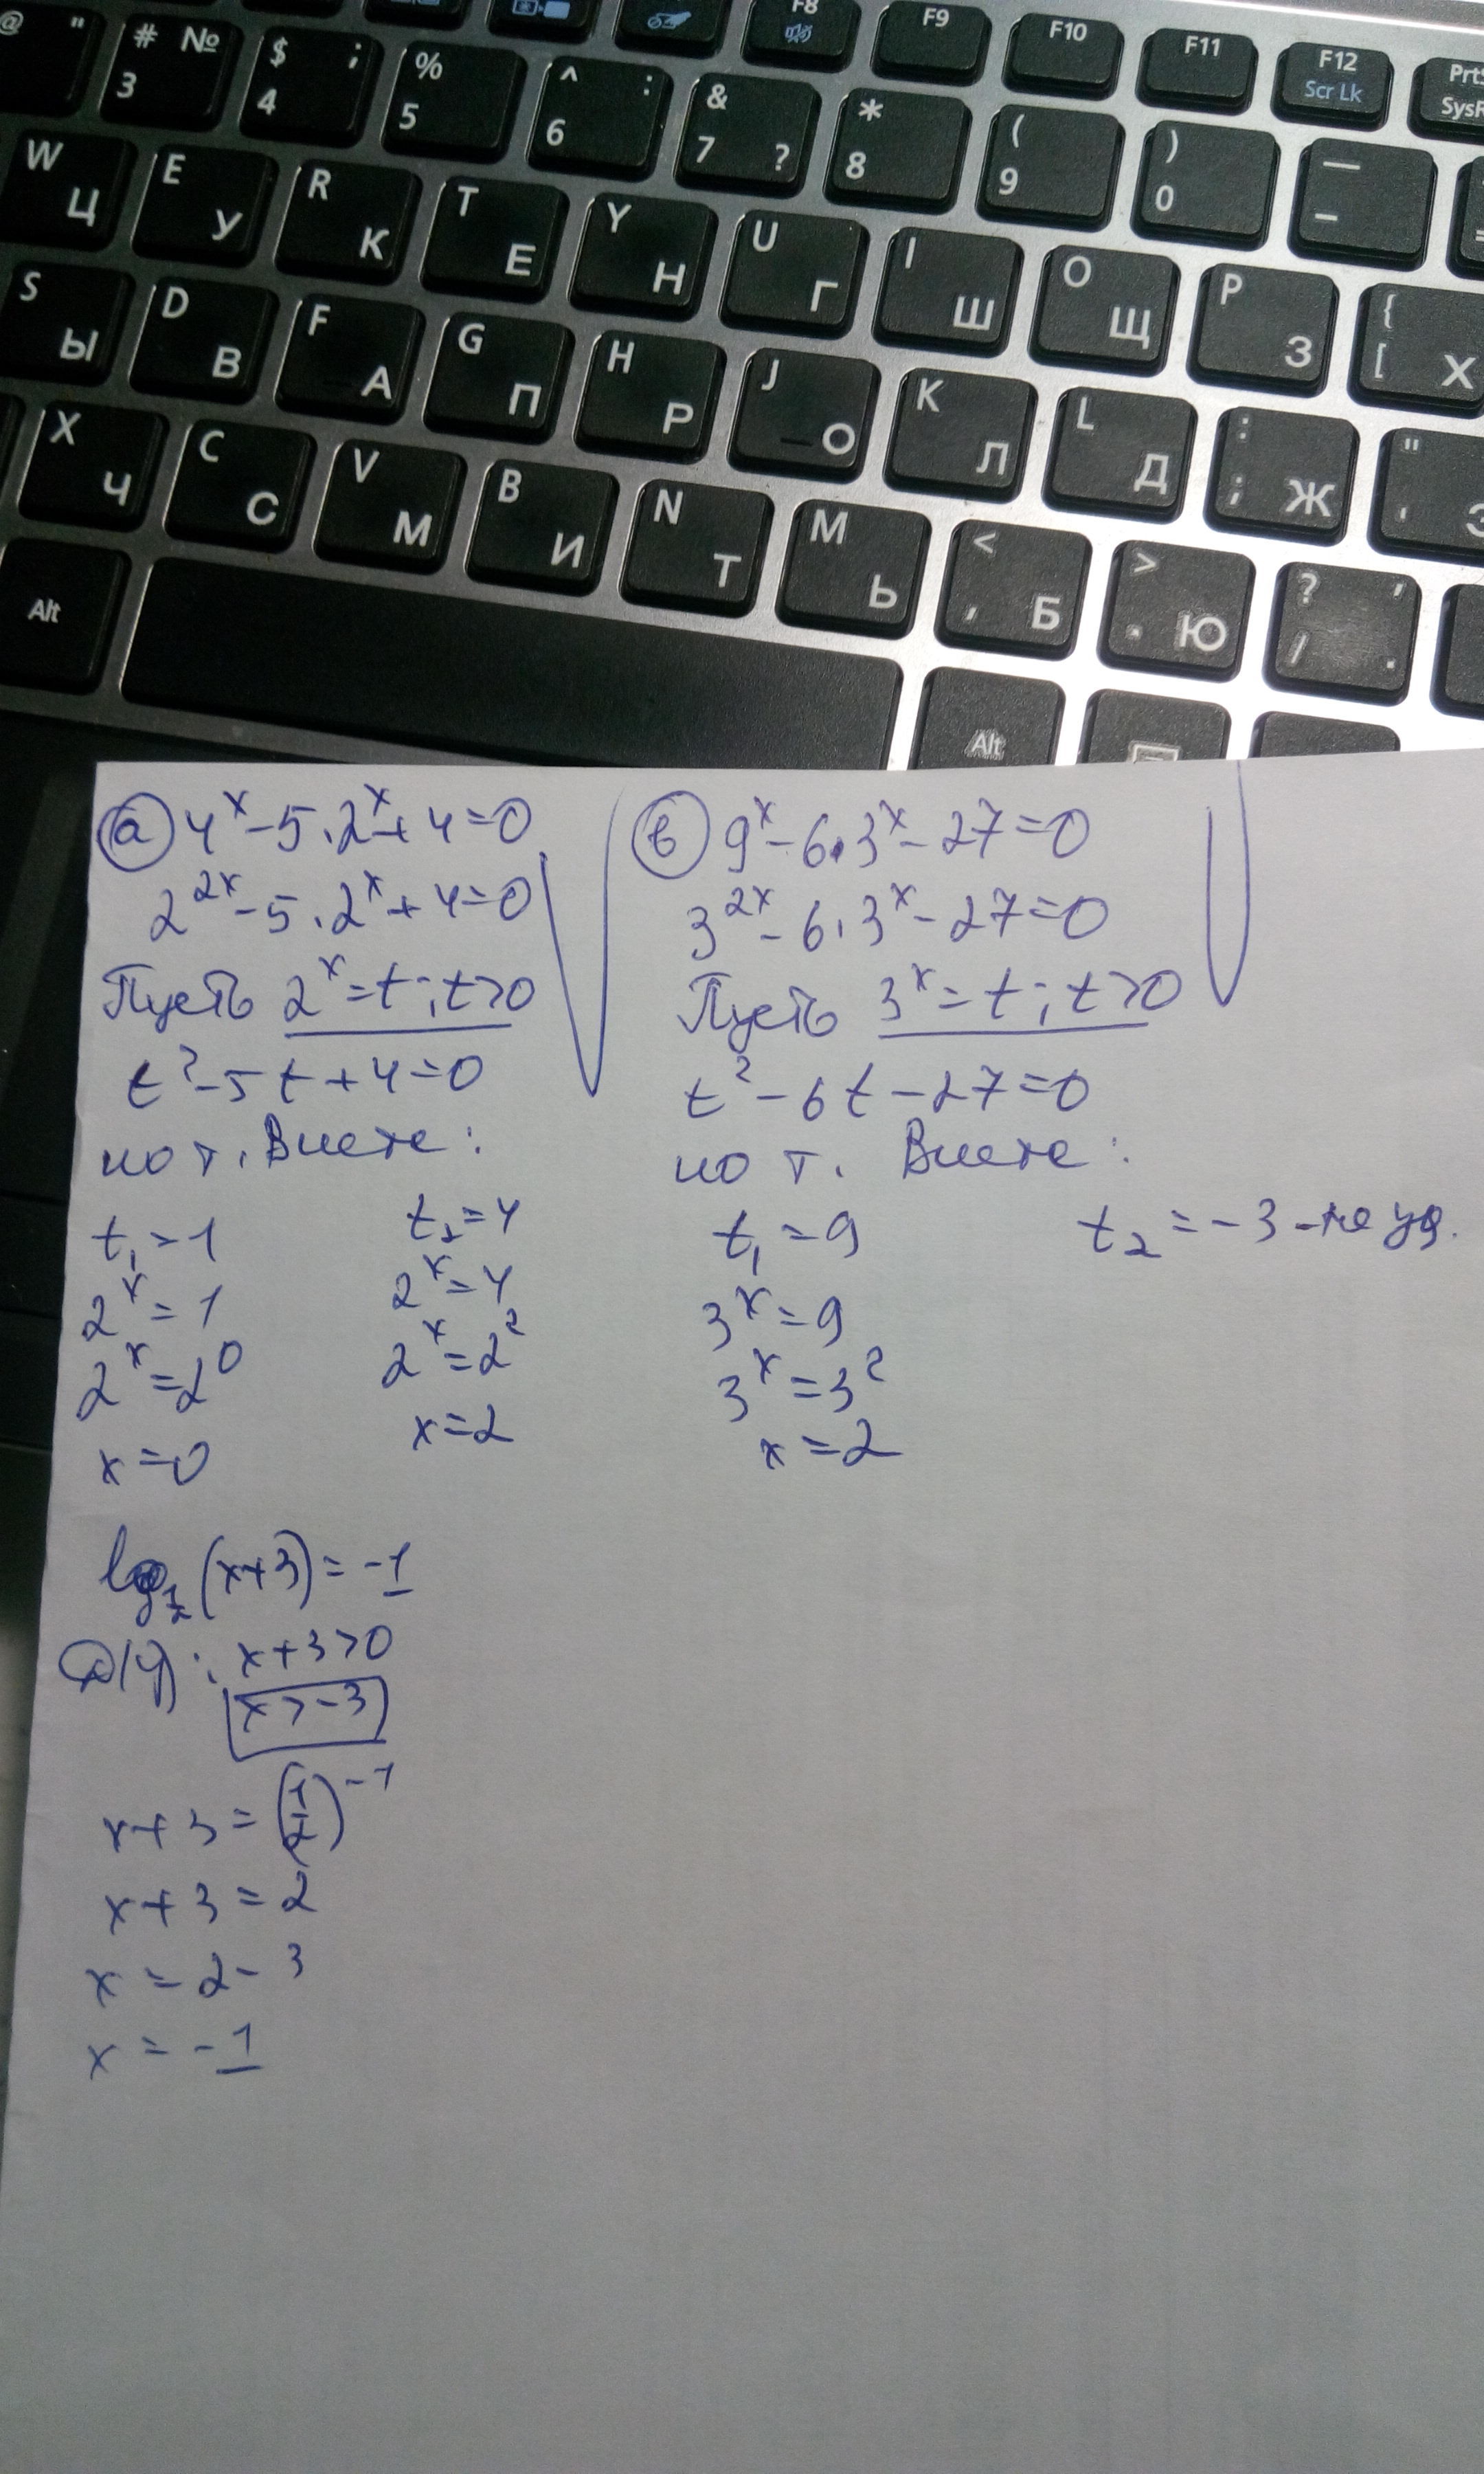 @ "
# № 3
$ ; 4
% 5
^ : 6
& 7 ?
* 8
( 9
) 0
— –
F8 F9 F10 F11 F12 Scr Lk
W Ц E У R К T Е Y Н U Г I Ш O Щ P З { [ Х
S Ы D В F А G П H Р J О K Л L Д : ; Ж " '
X Ч C С V М B И N Т M Ь < , Б > . Ю ? / , .
Alt Alt
а) 4^x - 5 · 2^x + 4 = 0
2^2x - 5 · 2^x + 4 = 0
Пусть 2^x = t; t > 0
t² - 5t + 4 = 0
по т. Виета:
t₁ = 1 t₂ = 4
2^x = 1 2^x = 4
2^x = 2^0 2^x = 2²
x = 0 x = 2
в) 9^x - 6 · 3^x - 27 = 0
3^2x - 6 · 3^x - 27 = 0
Пусть 3^x = t; t > 0
t² - 6t - 27 = 0
по т. Виета:
t₁ = 9 t₂ = -3 - не уд.
3^x = 9
3^x = 3²
x = 2
log_1/2 (x+3) = -1
D(y): x + 3 > 0
x > -3
x + 3 = (1/2)^-1
x + 3 = 2
x = 2 - 3
x = -1